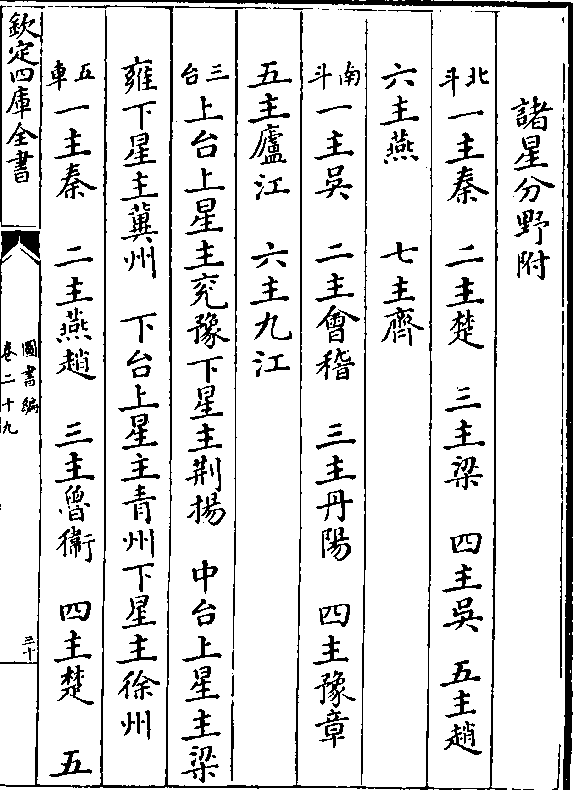 諸星分野附
北斗一主秦 二主楚 三主梁 四主吳 五主趙
六主燕 七主齊
南斗一主吳 二主會稽 三主丹陽 四主豫章
五主廬江 六主九江
三台上台上星主兖豫下星主荆揚 中台上星主梁
雍下星主冀州 下台上星主青州下星主徐州
五車一主秦 二主燕趙 三主魯衛 四主楚 五
欽定四庫全書
圖書編
卷二十九
三十